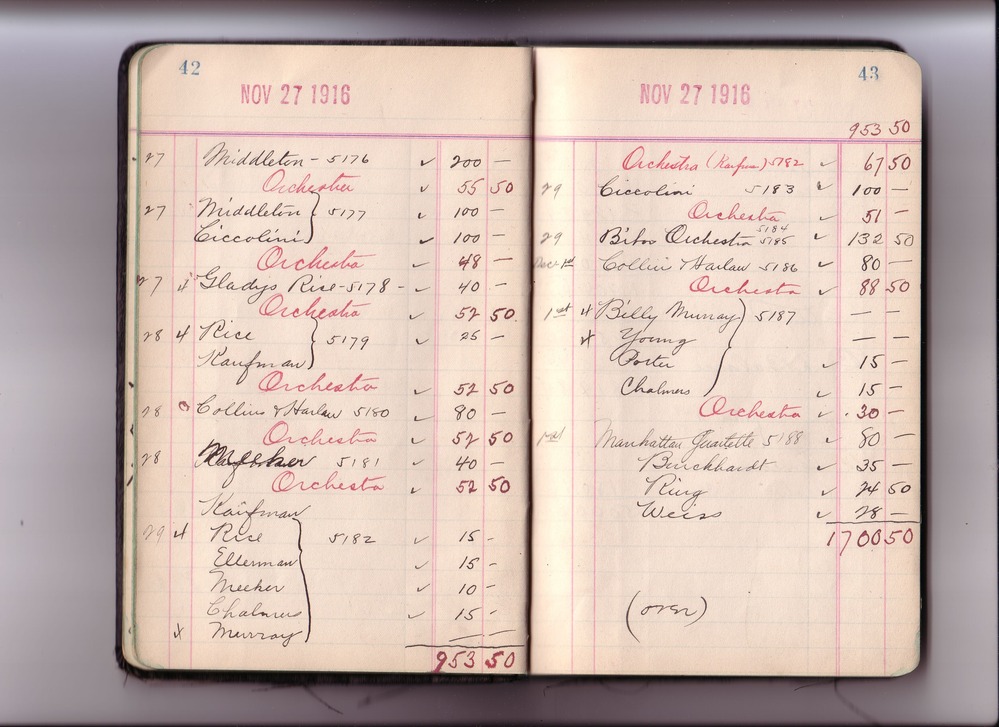 42
NOV 27 1916
27 Middleton - 5176 ✓ 200 —
Orchestra ✓ 55 50
27 Middleton } 5177 ✓ 100 —
Ciccolini ✓ 100 —
Orchestra ✓ 48 —
27 Gladys Rice - 5178 - ✓ 40 —
Orchestra ✓ 52 50
28 Rice } 5179 25 —
Kaufman
Orchestra ✓ 52 50
28 Collins & Harlan 5180 ✓ 80 —
Orchestra ✓ 52 50
28 5181 ✓ 40 —
Orchestra ✓ 52 50
Kaufman
29 Rice } 5182 ✓ 15 -
Ellerman 15 -
Meeker 10 -
Chalmers ✓ 15 -
x Murray — —
953 50
43
NOV 27 1916
953 50
Orchestra (Kaufman) 5182 ✓ 67 50
29 Ciccolini 5183 ✓ 100 —
Orchestra ✓ 51 —
5184
29 Orchestra 5185 ✓ 132 50
Dec 1st Collins & Harlan 5186 ✓ 80 —
Orchestra ✓ 88 50
1st x Billy Murray } 5187 — —
x Young — —
Porter ✓ 15 —
Chalmers ✓ 15 —
Orchestra ✓ 30 —
1st Manhattan Quartette 5188 ✓ 80 —
Burckhardt ✓ 35 —
Ring ✓ 24 50
Weiss ✓ 28 —
1700 50
(over)